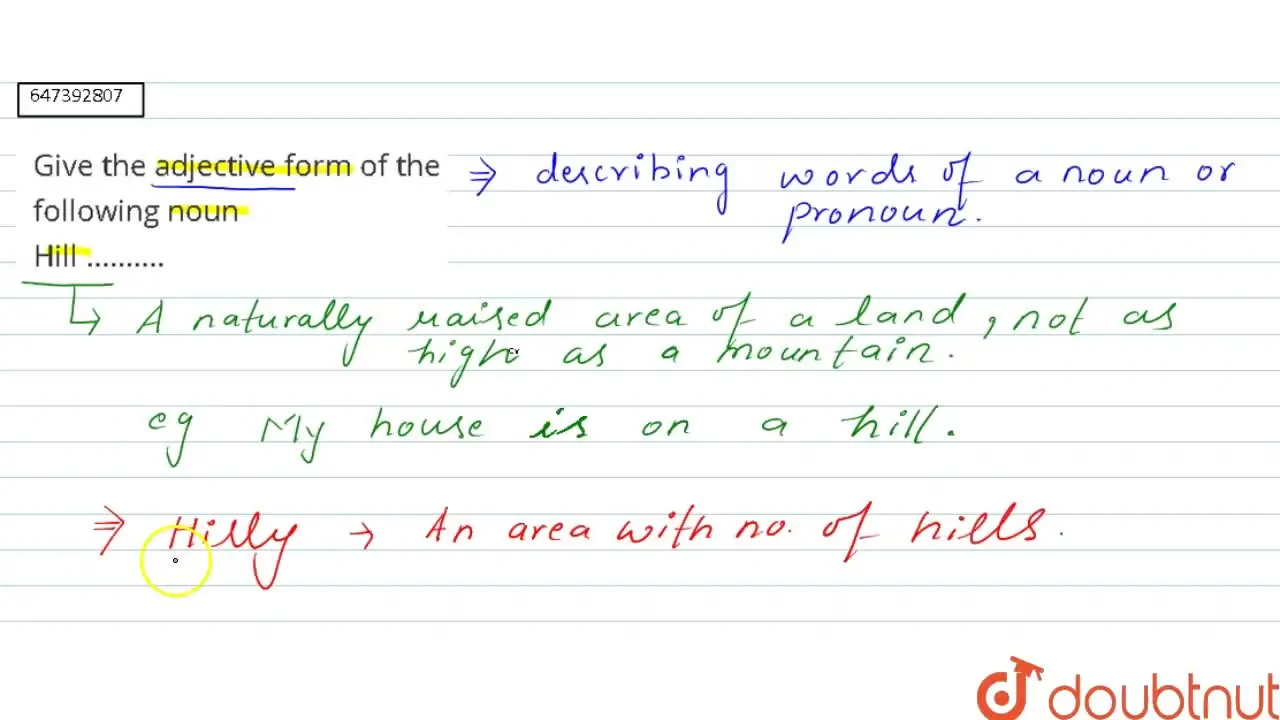 647392807
Give the adjective form of the ⇒ describing words of a noun or
following noun pronoun.
Hill ..........
↳ A naturally raised area of a land, not as
high as a mountain.
eg My house is on a hill.
⇒ Hilly → An area with no. of hills.
doubtnut